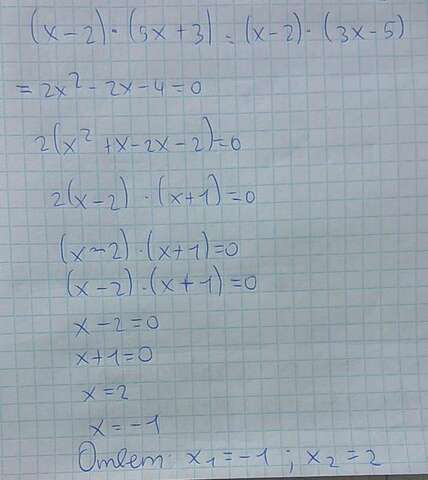 (x-2)·(5x+3) = (x-2)·(3x-5)
= 2x² - 2x - 4 = 0
2(x² + x - 2x - 2) = 0
2(x-2)·(x+1) = 0
(x-2)·(x+1) = 0
(x-2)·(x+1) = 0
x - 2 = 0
x + 1 = 0
x = 2
x = -1
Ответ: x₁ = -1 ; x₂ = 2